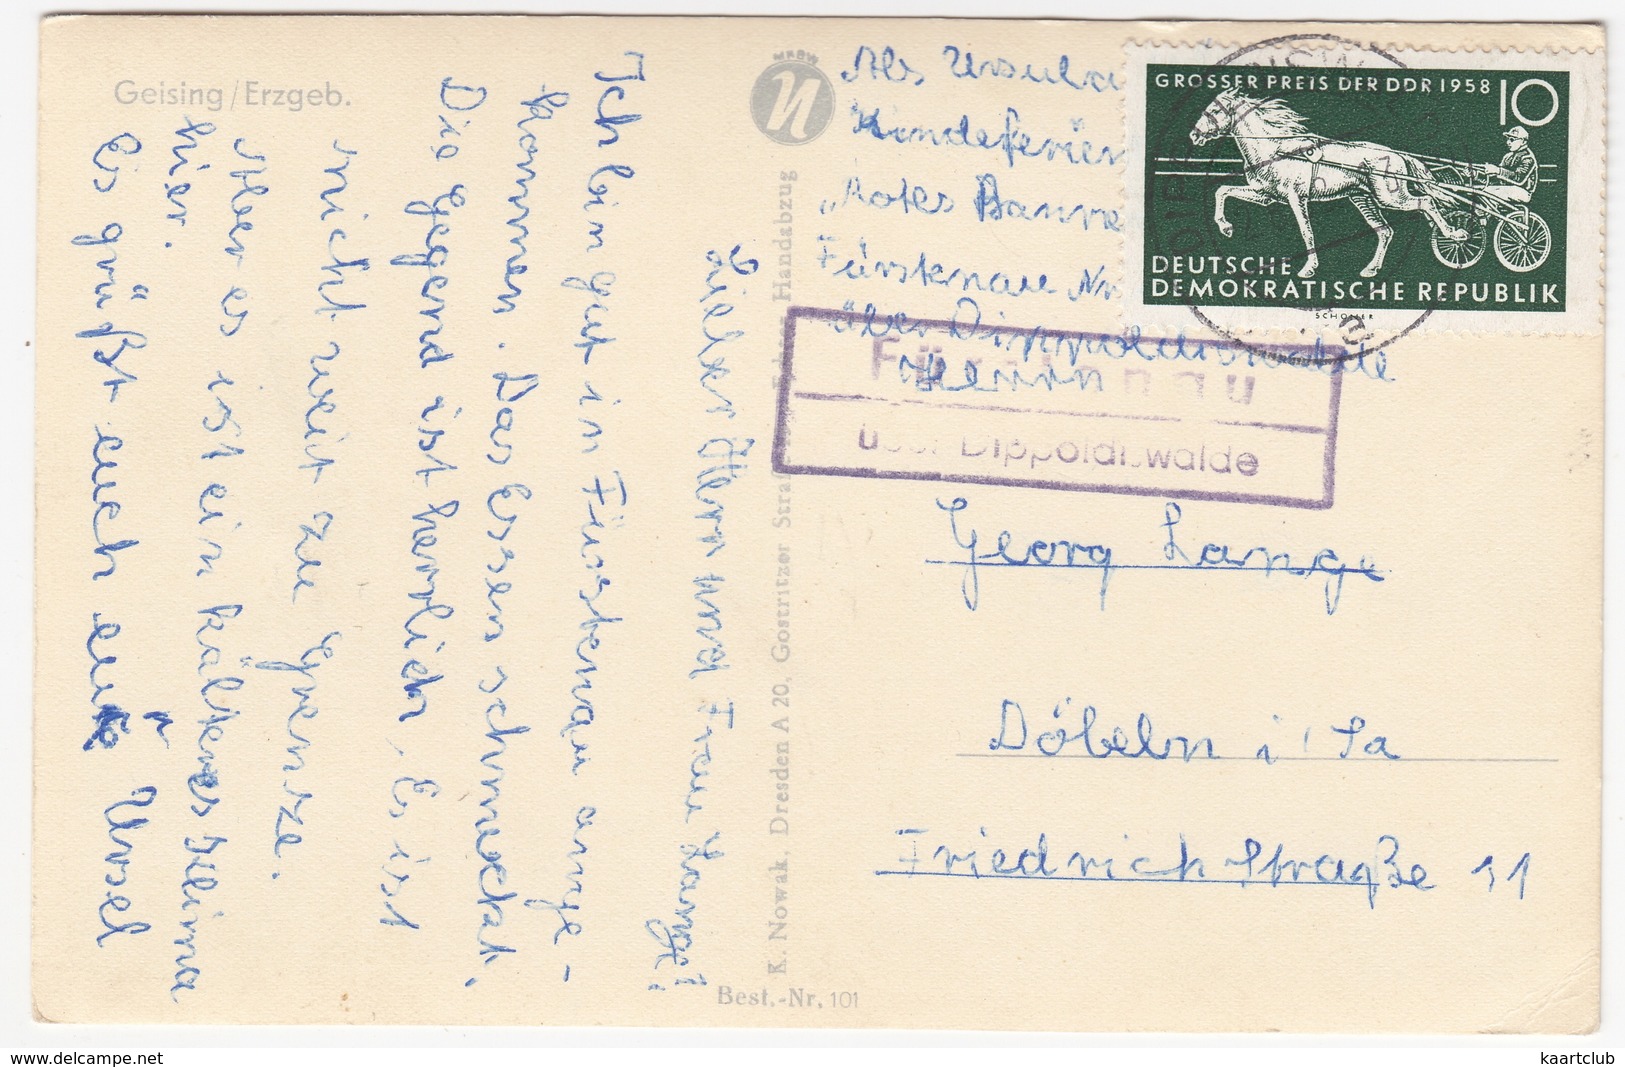 Geising/Erzgeb.
MKBW
Abs Ursula
Kindeferien
„Rotes Banne
Fürstenau Nr
über Dippoldiswalde
GROSSER PREIS DER DDR 1958 10
DEUTSCHE
DEMOKRATISCHE REPUBLIK
SCHOLLER
Fürstenau
über Dippoldiswalde
Herrn
Georg Lange
Döbeln i. Sa
Friedrich Straße 11
Lieber Herr und Frau Lange!
Ich bin gut in Fürstenau ange-
kommen. Das Essen schmeckt.
Die Gegend ist herrlich. Es ist
nicht weit zu Grenze.
Aber es ist ein kälteres Klima
hier.
Es grüßt euch eure Ursel
K. Nowak, Dresden A 20, Gostritzer Straße Handabzug
Best.-Nr. 101
www.delcampe.net
kaartclub